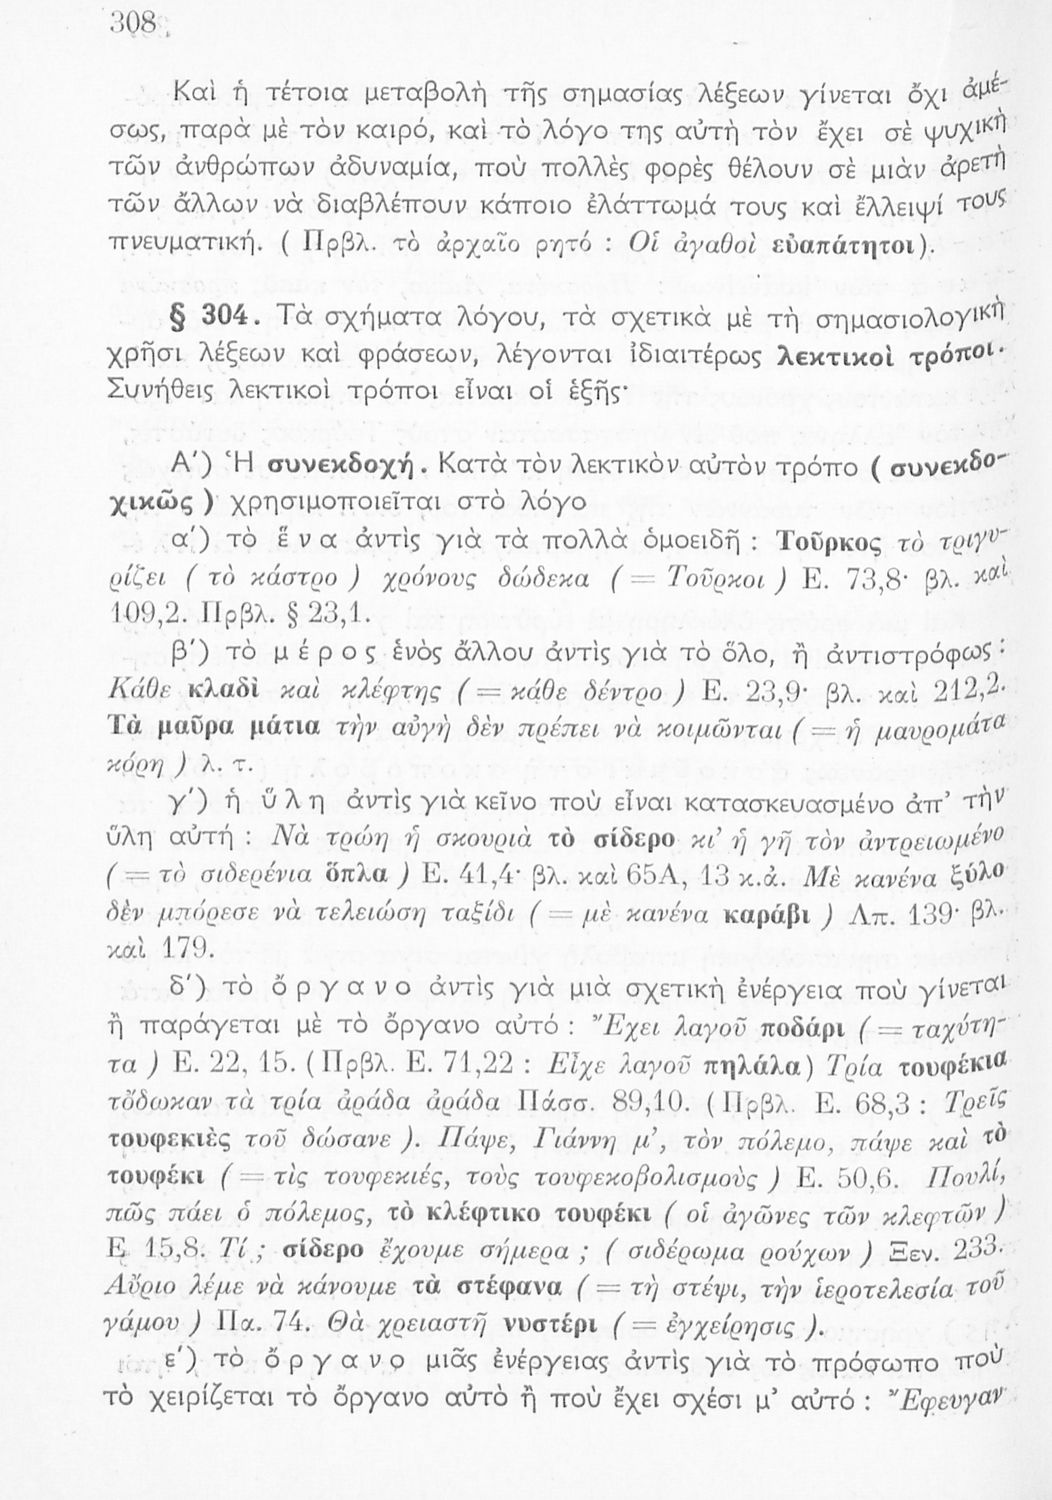 308
Καὶ ἡ τέτοια μεταβολὴ τῆς σημασίας λέξεων γίνεται ὄχι ἀμέ-
σως, παρὰ μὲ τὸν καιρό, καὶ τὸ λόγο της αὐτὴ τὸν ἔχει σὲ ψυχικὴ
τῶν ἀνθρώπων ἀδυναμία, ποὺ πολλὲς φορὲς θέλουν σὲ μιὰν ἀρετὴ
τῶν ἄλλων νὰ διαβλέπουν κάποιο ἐλάττωμά τους καὶ ἔλλειψί τους
πνευματική. ( Πρβλ. τὸ ἀρχαῖο ρητό : Οἱ ἀγαθοὶ εὐαπάτητοι).
§ 304. Τὰ σχήματα λόγου, τὰ σχετικὰ μὲ τὴ σημασιολογικὴ
χρῆσι λέξεων καὶ φράσεων, λέγονται ἰδιαιτέρως λεκτικοὶ τρόποι.
Συνήθεις λεκτικοὶ τρόποι εἶναι οἱ ἑξῆς·
Α′) Ἡ συνεκδοχή. Κατὰ τὸν λεκτικὸν αὐτὸν τρόπο ( συνεκδο-
χικῶς ) χρησιμοποιεῖται στὸ λόγο
α′) τὸ ἕνα ἀντὶς γιὰ τὰ πολλὰ ὁμοειδῆ : Τοῦρκος τὸ τριγυ-
ρίζει ( τὸ κάστρο ) χρόνους δώδεκα ( = Τοῦρκοι ) Ε. 73,8· βλ. καὶ
109,2. Πρβλ. § 23,1.
β′) τὸ μέρος ἑνὸς ἄλλου ἀντὶς γιὰ τὸ ὅλο, ἢ ἀντιστρόφως :
Κάθε κλαδὶ καὶ κλέφτης ( = κάθε δέντρο ) Ε. 23,9· βλ. καὶ 212,2.
Τὰ μαῦρα μάτια τὴν αὐγὴ δὲν πρέπει νὰ κοιμῶνται ( = ἡ μαυρομάτα
κόρη ) λ. τ.
γ′) ἡ ὕλη ἀντὶς γιὰ κεῖνο ποὺ εἶναι κατασκευασμένο ἀπ’ τὴν
ὕλη αὐτή : Νὰ τρώη ἡ σκουριὰ τὸ σίδερο κι’ ἡ γῆ τὸν ἀντρειωμένο
( = τὸ σιδερένια ὅπλα ) Ε. 41,4· βλ. καὶ 65Α, 13 κ.ἀ. Μὲ κανένα ξύλο
δὲν μπόρεσε νὰ τελειώση ταξίδι ( = μὲ κανένα καράβι ) Λπ. 139· βλ.
καὶ 179.
δ′) τὸ ὄργανο ἀντὶς γιὰ μιὰ σχετικὴ ἐνέργεια ποὺ γίνεται
ἢ παράγεται μὲ τὸ ὄργανο αὐτό : Ἔχει λαγοῦ ποδάρι ( = ταχύτη-
τα ) Ε. 22, 15. (Πρβλ. Ε. 71,22 : Εἶχε λαγοῦ πηλάλα) Τρία τουφέκια
τὄδωκαν τὰ τρία ἀράδα ἀράδα Πάσσ. 89,10. (Πρβλ. Ε. 68,3 : Τρεῖς
τουφεκιὲς τοῦ δώσανε ). Πάψε, Γιάννη μ’, τὸν πόλεμο, πάψε καὶ τὸ
τουφέκι ( = τὶς τουφεκιές, τοὺς τουφεκοβολισμοὺς ) Ε. 50,6. Πουλί,
πῶς πάει ὁ πόλεμος, τὸ κλέφτικο τουφέκι ( οἱ ἀγῶνες τῶν κλεφτῶν )
Ε 15,8. Τί ; σίδερο ἔχουμε σήμερα ; ( σιδέρωμα ρούχων ) Ξεν. 233.
Αὔριο λέμε νὰ κάνουμε τὰ στέφανα ( = τὴ στέψι, τὴν ἱεροτελεσία τοῦ
γάμου ) Πα. 74. Θὰ χρειαστῆ νυστέρι ( = ἐγχείρησις ).
ε′) τὸ ὄργανο μιᾶς ἐνέργειας ἀντὶς γιὰ τὸ πρόσωπο ποὺ
τὸ χειρίζεται τὸ ὄργανο αὐτὸ ἢ ποὺ ἔχει σχέσι μ’ αὐτό : Ἔφευγαν